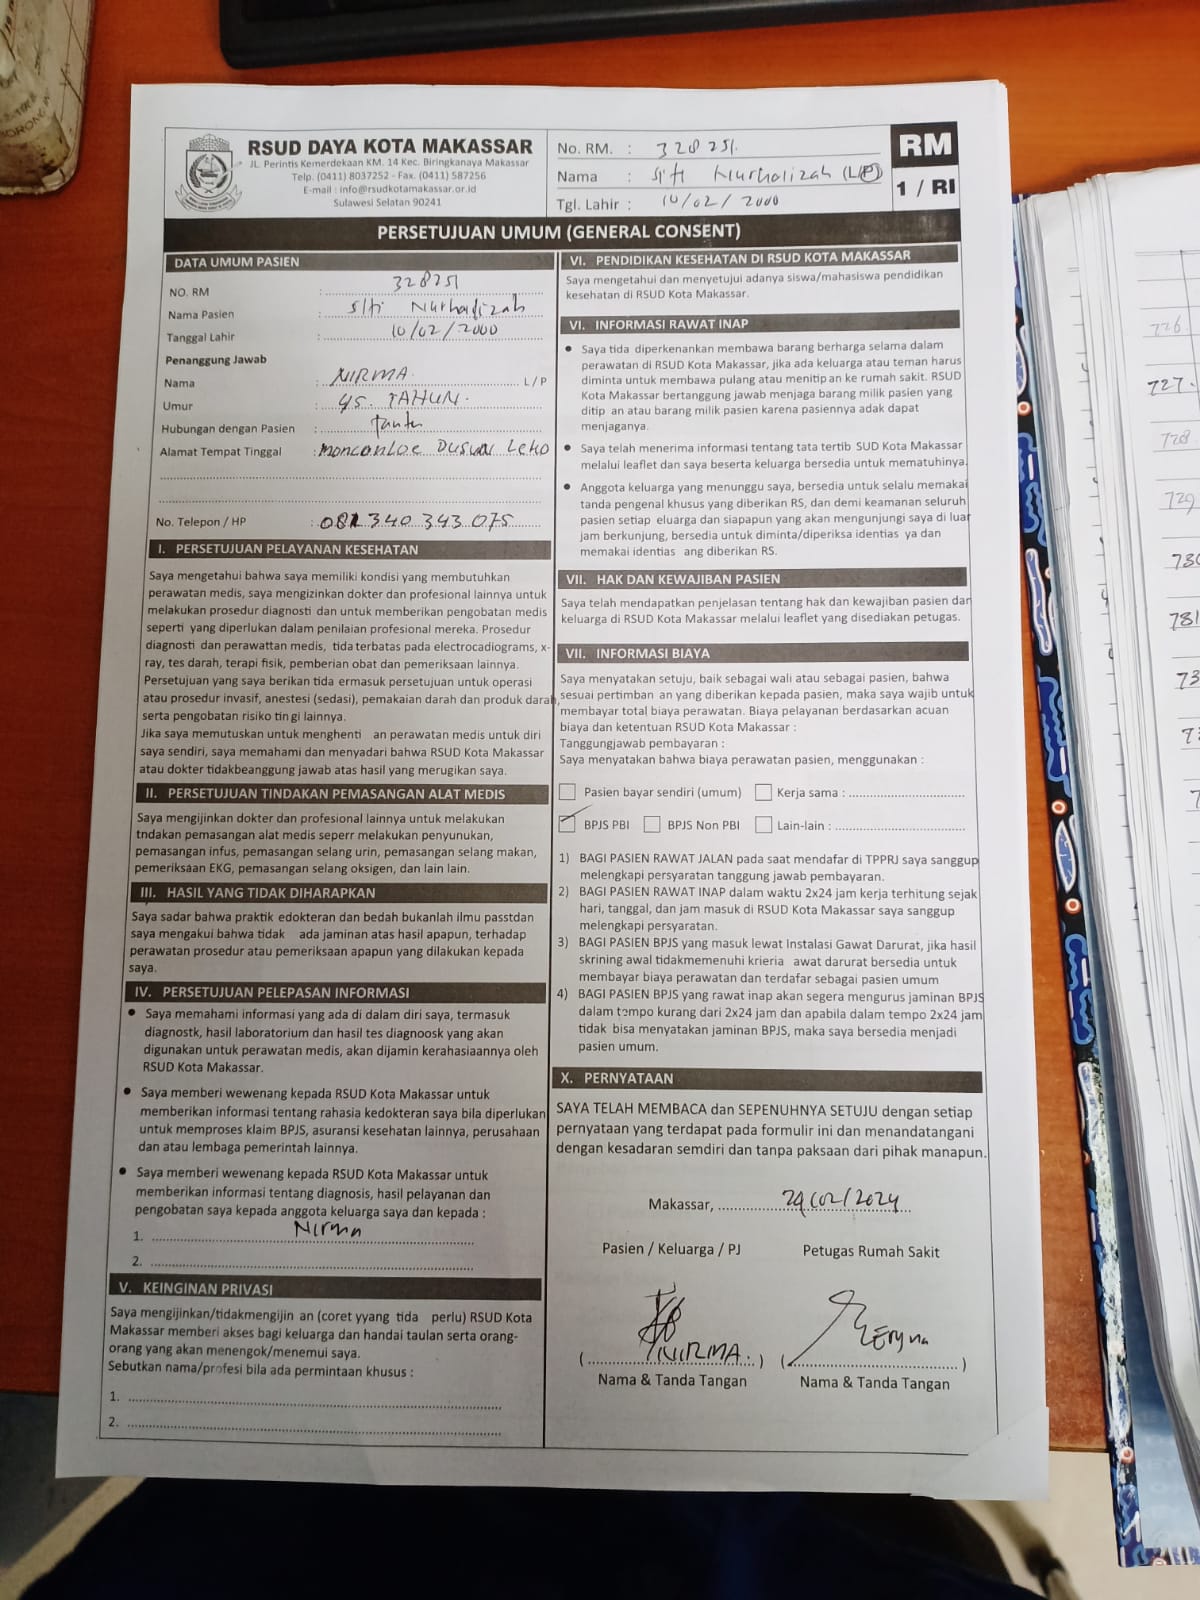 RSUD DAYA KOTA MAKASSAR
JL. Perintis Kemerdekaan KM. 14 Kec. Biringkanaya Makassar
Telp. (0411) 8037252 - Fax. (0411) 587256
E-mail : info@rsudkotamakassar.or.id
Sulawesi Selatan 90241
No. RM. : 328251
Nama : Siti Nurhalizah (L/P)
Tgl. Lahir : 10/02/2000
RM
1 / RI
PERSETUJUAN UMUM (GENERAL CONSENT)
DATA UMUM PASIEN
NO. RM : 328251
Nama Pasien : Siti Nurhalizah
Tanggal Lahir : 10/02/2000
Penanggung Jawab
Nama : NIRMA. L / P
Umur : 45. TAHUN.
Hubungan dengan Pasien : Tante
Alamat Tempat Tinggal : moncongloe Dusun Leko
No. Telepon / HP : 081 340 343 075
I. PERSETUJUAN PELAYANAN KESEHATAN
Saya mengetahui bahwa saya memiliki kondisi yang membutuhkan
perawatan medis, saya mengizinkan dokter dan profesional lainnya untuk
melakukan prosedur diagnosti dan untuk memberikan pengobatan medis
seperti yang diperlukan dalam penilaian profesional mereka. Prosedur
diagnosti dan perawattan medis, tida terbatas pada electrocadiograms, x-
ray, tes darah, terapi fisik, pemberian obat dan pemeriksaan lainnya.
Persetujuan yang saya berikan tida ermasuk persetujuan untuk operasi
atau prosedur invasif, anestesi (sedasi), pemakaian darah dan produk darah,
serta pengobatan risiko tin gi lainnya.
Jika saya memutuskan untuk menghenti an perawatan medis untuk diri
saya sendiri, saya memahami dan menyadari bahwa RSUD Kota Makassar
atau dokter tidakbeanggung jawab atas hasil yang merugikan saya.
II. PERSETUJUAN TINDAKAN PEMASANGAN ALAT MEDIS
Saya mengijinkan dokter dan profesional lainnya untuk melakukan
tndakan pemasangan alat medis seperr melakukan penyunukan,
pemasangan infus, pemasangan selang urin, pemasangan selang makan,
pemeriksaan EKG, pemasangan selang oksigen, dan lain lain.
III. HASIL YANG TIDAK DIHARAPKAN
Saya sadar bahwa praktik edokteran dan bedah bukanlah ilmu passtdan
saya mengakui bahwa tidak ada jaminan atas hasil apapun, terhadap
perawatan prosedur atau pemeriksaan apapun yang dilakukan kepada
saya.
IV. PERSETUJUAN PELEPASAN INFORMASI
• Saya memahami informasi yang ada di dalam diri saya, termasuk
diagnostk, hasil laboratorium dan hasil tes diagnoosk yang akan
digunakan untuk perawatan medis, akan dijamin kerahasiaannya oleh
RSUD Kota Makassar.
• Saya memberi wewenang kepada RSUD Kota Makassar untuk
memberikan informasi tentang rahasia kedokteran saya bila diperlukan
untuk memproses klaim BPJS, asuransi kesehatan lainnya, perusahaan
dan atau lembaga pemerintah lainnya.
• Saya memberi wewenang kepada RSUD Kota Makassar untuk
memberikan informasi tentang diagnosis, hasil pelayanan dan
pengobatan saya kepada anggota keluarga saya dan kepada :
1. Nirma
2.
V. KEINGINAN PRIVASI
Saya mengijinkan/tidakmengijin an (coret yyang tida perlu) RSUD Kota
Makassar memberi akses bagi keluarga dan handai taulan serta orang-
orang yang akan menengok/menemui saya.
Sebutkan nama/profesi bila ada permintaan khusus :
1.
2.
VI. PENDIDIKAN KESEHATAN DI RSUD KOTA MAKASSAR
Saya mengetahui dan menyetujui adanya siswa/mahasiswa pendidikan
kesehatan di RSUD Kota Makassar.
VI. INFORMASI RAWAT INAP
• Saya tida diperkenankan membawa barang berharga selama dalam
perawatan di RSUD Kota Makassar, jika ada keluarga atau teman harus
diminta untuk membawa pulang atau menitip an ke rumah sakit. RSUD
Kota Makassar bertanggung jawab menjaga barang milik pasien yang
ditip an atau barang milik pasien karena pasiennya adak dapat
menjaganya.
• Saya telah menerima informasi tentang tata tertib SUD Kota Makassar
melalui leaflet dan saya beserta keluarga bersedia untuk mematuhinya.
• Anggota keluarga yang menunggu saya, bersedia untuk selalu memakai
tanda pengenal khusus yang diberikan RS, dan demi keamanan seluruh
pasien setiap eluarga dan siapapun yang akan mengunjungi saya di luar
jam berkunjung, bersedia untuk diminta/diperiksa identias ya dan
memakai identias ang diberikan RS.
VII. HAK DAN KEWAJIBAN PASIEN
Saya telah mendapatkan penjelasan tentang hak dan kewajiban pasien dan
keluarga di RSUD Kota Makassar melalui leaflet yang disediakan petugas.
VII. INFORMASI BIAYA
Saya menyatakan setuju, baik sebagai wali atau sebagai pasien, bahwa
sesuai pertimban an yang diberikan kepada pasien, maka saya wajib untuk
membayar total biaya perawatan. Biaya pelayanan berdasarkan acuan
biaya dan ketentuan RSUD Kota Makassar :
Tanggungjawab pembayaran :
Saya menyatakan bahwa biaya perawatan pasien, menggunakan :
Pasien bayar sendiri (umum) Kerja sama :
BPJS PBI BPJS Non PBI Lain-lain :
1) BAGI PASIEN RAWAT JALAN pada saat mendafar di TPPRJ saya sanggup
melengkapi persyaratan tanggung jawab pembayaran.
2) BAGI PASIEN RAWAT INAP dalam waktu 2x24 jam kerja terhitung sejak
hari, tanggal, dan jam masuk di RSUD Kota Makassar saya sanggup
melengkapi persyaratan.
3) BAGI PASIEN BPJS yang masuk lewat Instalasi Gawat Darurat, jika hasil
skrining awal tidakmemenuhi krieria awat darurat bersedia untuk
membayar biaya perawatan dan terdafar sebagai pasien umum
4) BAGI PASIEN BPJS yang rawat inap akan segera mengurus jaminan BPJS
dalam tempo kurang dari 2x24 jam dan apabila dalam tempo 2x24 jam
tidak bisa menyatakan jaminan BPJS, maka saya bersedia menjadi
pasien umum.
X. PERNYATAAN
SAYA TELAH MEMBACA dan SEPENUHNYA SETUJU dengan setiap
pernyataan yang terdapat pada formulir ini dan menandatangani
dengan kesadaran semdiri dan tanpa paksaan dari pihak manapun.
Makassar, 29/02/2024
Pasien / Keluarga / PJ Petugas Rumah Sakit
( NIRMA. ) ( )
Nama & Tanda Tangan Nama & Tanda Tangan
726
727.
728
729
730
781